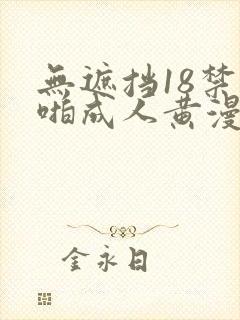 無遮挡18禁
啪成人黄漫
金永日